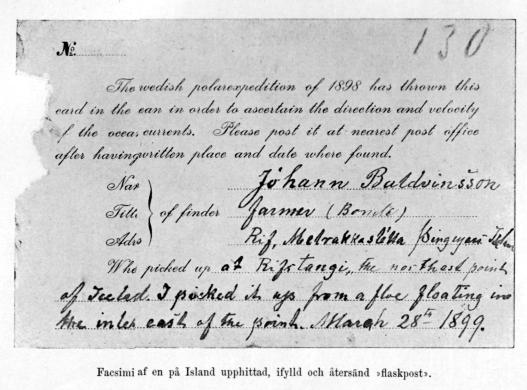 No. 130
The wedish polarexpedition of 1898 has thrown this
card in the ean in order to ascertain the direction and velocity
f the ocea, currents. Please post it at nearest post office
after havingwritten place and date where found.
Nar Jóhann Baldvinsson
Title of finder farmer (Bonde)
Adrs Rif, Melrakkaslétta
Who picked up at Rifstangi, the northost point
of Iceland. I picked it up from a floe floating in
the inlet east of the point. March 28th 1899.
Facsimi af en på Island upphittad, ifylld och återsänd »flaskpost».